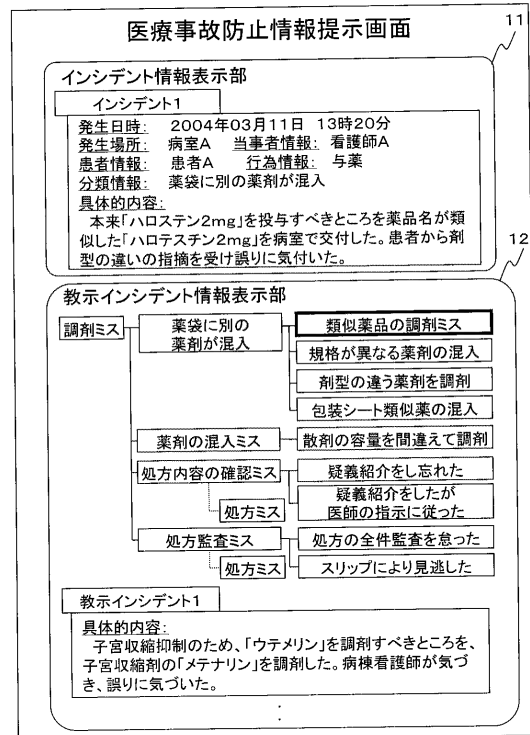 医療事故防止情報提示画面
11
インシデント情報表示部
インシデント1
発生日時: 2004年03月11日 13時20分
発生場所: 病室A 当事者情報: 看護師A
患者情報: 患者A 行為情報: 与薬
分類情報: 薬袋に別の薬剤が混入
具体的内容:
本来「ハロステン2mg」を投与すべきところを薬品名が類
似した「ハロテスチン2mg」を病室で交付した。患者から剤
型の違いの指摘を受け誤りに気付いた。
12
教示インシデント情報表示部
調剤ミス
薬袋に別の
薬剤が混入
類似薬品の調剤ミス
規格が異なる薬剤の混入
剤型の違う薬剤を調剤
包装シート類似薬の混入
薬剤の混入ミス
散剤の容量を間違えて調剤
処方内容の確認ミス
疑義紹介をし忘れた
処方ミス
疑義紹介をしたが
医師の指示に従った
処方監査ミス
処方の全件監査を怠った
処方ミス
スリップにより見逃した
教示インシデント1
具体的内容:
子宮収縮抑制のため、「ウテメリン」を調剤すべきところを、
子宮収縮剤の「メテナリン」を調剤した。病棟看護師が気づ
き、誤りに気づいた。